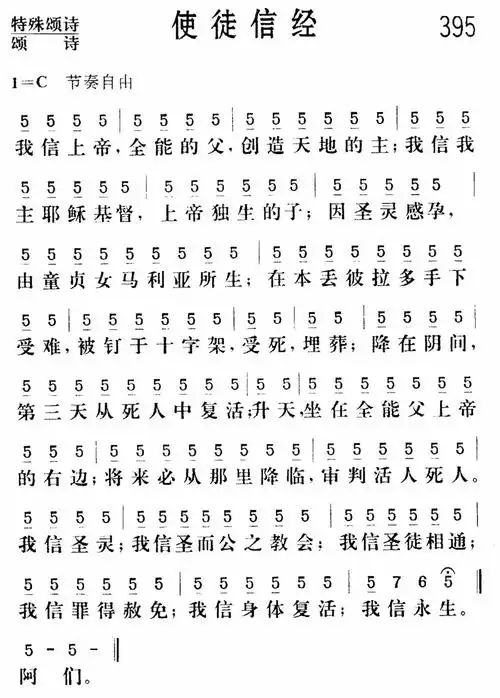 特殊颂诗
颂 诗
使徒信经
395
1=C 节奏自由
5 5 5 5 | 5 5 5 5 | 5 5 5 5 5 5 | 5 5 5
我信上帝,全能的父,创造天地的主;我信我
5 5 5 5 5 | 5 5 5 5 5 5 | 5 5 5 5 5
主耶稣基督,上帝独生的子;因圣灵感孕,
5 5 5 5 5 5 5 5 5 | 5 5 5 5 5 5 5 5
由童贞女马利亚所生;在本丢彼拉多手下
5 5 | 5 5 5 5 5 5 | 5 5 | 5 5 | 5 5 5 5
受难,被钉于十字架,受死,埋葬;降在阴间,
5 5 5 5 5 5 5 5 5 | 5 5 | 5 5 5 5 5 5 5
第三天从死人中复活;升天,坐在全能父上帝
5 5 5 | 5 5 5 5 5 5 5 5 | 5 5 5 5 5 5
的右边;将来必从那里降临,审判活人死人。
5 5 5 5 | 5 5 5 5 5 5 5 | 5 5 5 5 5 5
我信圣灵;我信圣而公之教会;我信圣徒相通;
5 5 5 5 5 5 | 5 5 5 5 5 5 | 5 5 7 6 5
我信罪得赦免;我信身体复活;我信永生。
5 - 5 -
阿们。